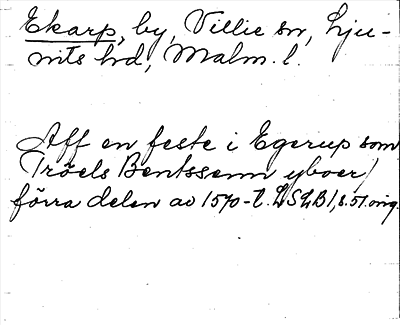 Ekarp, by, Villie sn, Lju-
nits hd, Malm. l.
Aff en feste i Egerup som
Tröels Bentssenn yboer/
förra delen av 1570-t. LSLB1, s. 51. orig.